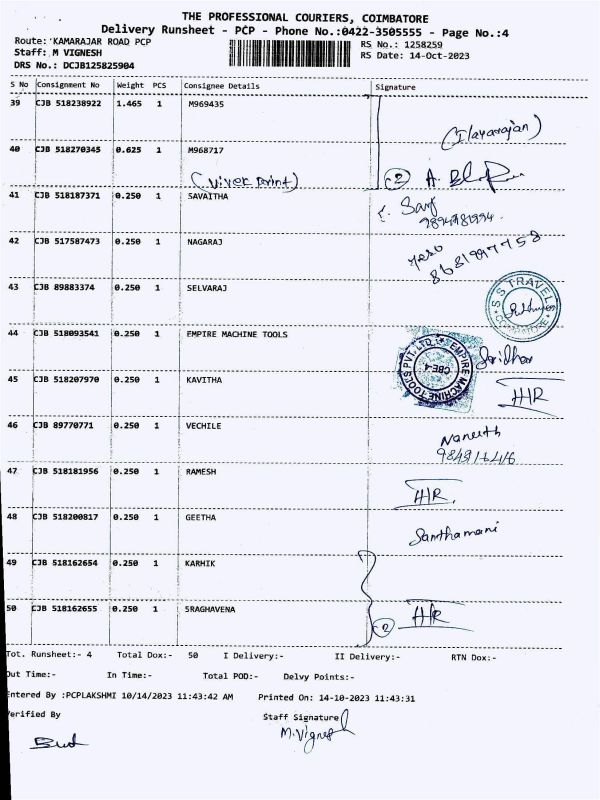 THE PROFESSIONAL COURIERS, COIMBATORE
Delivery Runsheet - PCP - Phone No.:0422-3505555 - Page No.:4
Route: KAMARAJAR ROAD PCP RS No.: 1258259
Staff: M VIGNESH RS Date: 14-Oct-2023
DRS No.: DCJB125825904
S No Consignment No Weight PCS Consignee Details Signature
39 CJB 518238922 1.465 1 M969435
(Ilayarajan)
40 CJB 518270345 0.625 1 M968717
(Vivek Print) 2
41 CJB 518187371 0.250 1 SAVAITHA
42 CJB 517587473 0.250 1 NAGARAJ
8681997758
43 CJB 89883374 0.250 1 SELVARAJ
S S TRAVELS COIMBATORE
44 CJB 518093541 0.250 1 EMPIRE MACHINE TOOLS
EMPIRE MACHINE TOOLS PVT. LTD. CBE-4 Sridhar
45 CJB 518207970 0.250 1 KAVITHA
HR
46 CJB 89770771 0.250 1 VECHILE
47 CJB 518181956 0.250 1 RAMESH
HR
48 CJB 518200817 0.250 1 GEETHA
Santhamani
49 CJB 518162654 0.250 1 KARHIK
50 CJB 518162655 0.250 1 SRAGHAVENA
2 HR
Tot. Runsheet:- 4 Total Dox:- 50 I Delivery:- II Delivery:- RTN Dox:-
Out Time:- In Time:- Total POD:- Delvy Points:-
Entered By :PCPLAKSHMI 10/14/2023 11:43:42 AM Printed On: 14-10-2023 11:43:31
Verified By Staff Signature
M.Vignesh